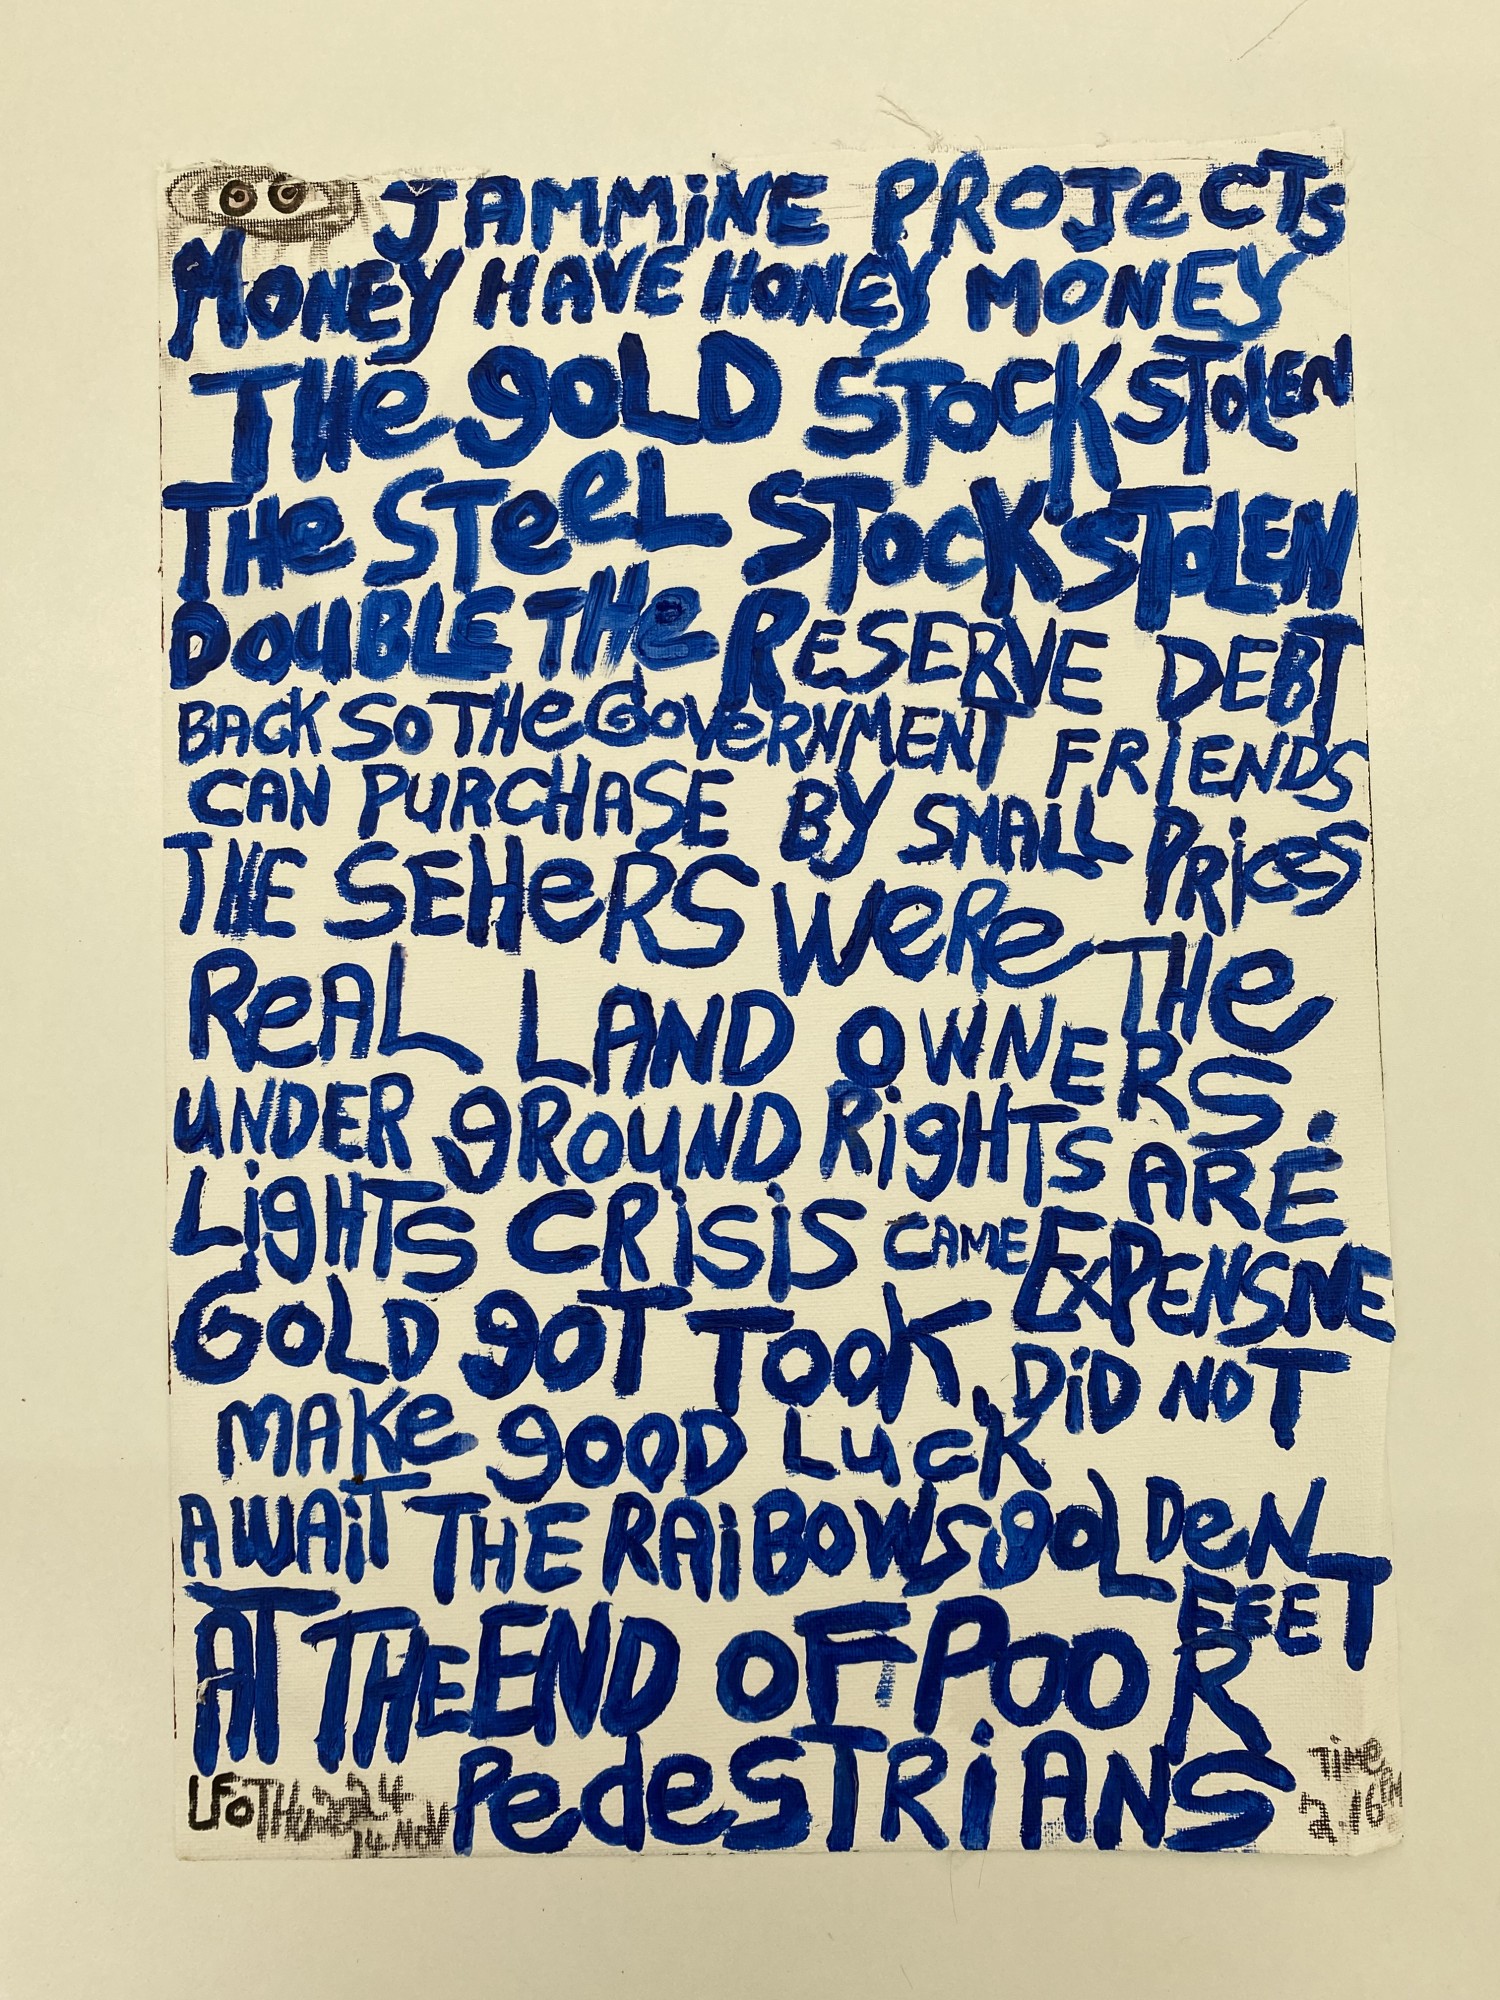 JAMMiNE PROJeCTs
MONEY HAVE HONEY MONEY
THe gOLD STOCK STOLEN
THe STeeL STOCK STOLEN
DOUBLE THe RESERVE DEBT
BACK SO THe GOVeRNMENT FRiENDS
CAN PURCHASE BY SMALL PRiceS
THE SEHeRS WeRe THe
ReAL LAND OWNERS.
UNDER gROUND RigHTS ARE
LigHTS CRiSiS CAME EXPENSNE
GOLD gOT TOOK, DiD NOT
MAKe gOOD LUCK
AWAiT THE RAiBOWS gOLDeN
FEET
AT THE END OF POOR
PedeSTRiANS
LFO THU 2024
14 NOV
TiMe
2.16PM